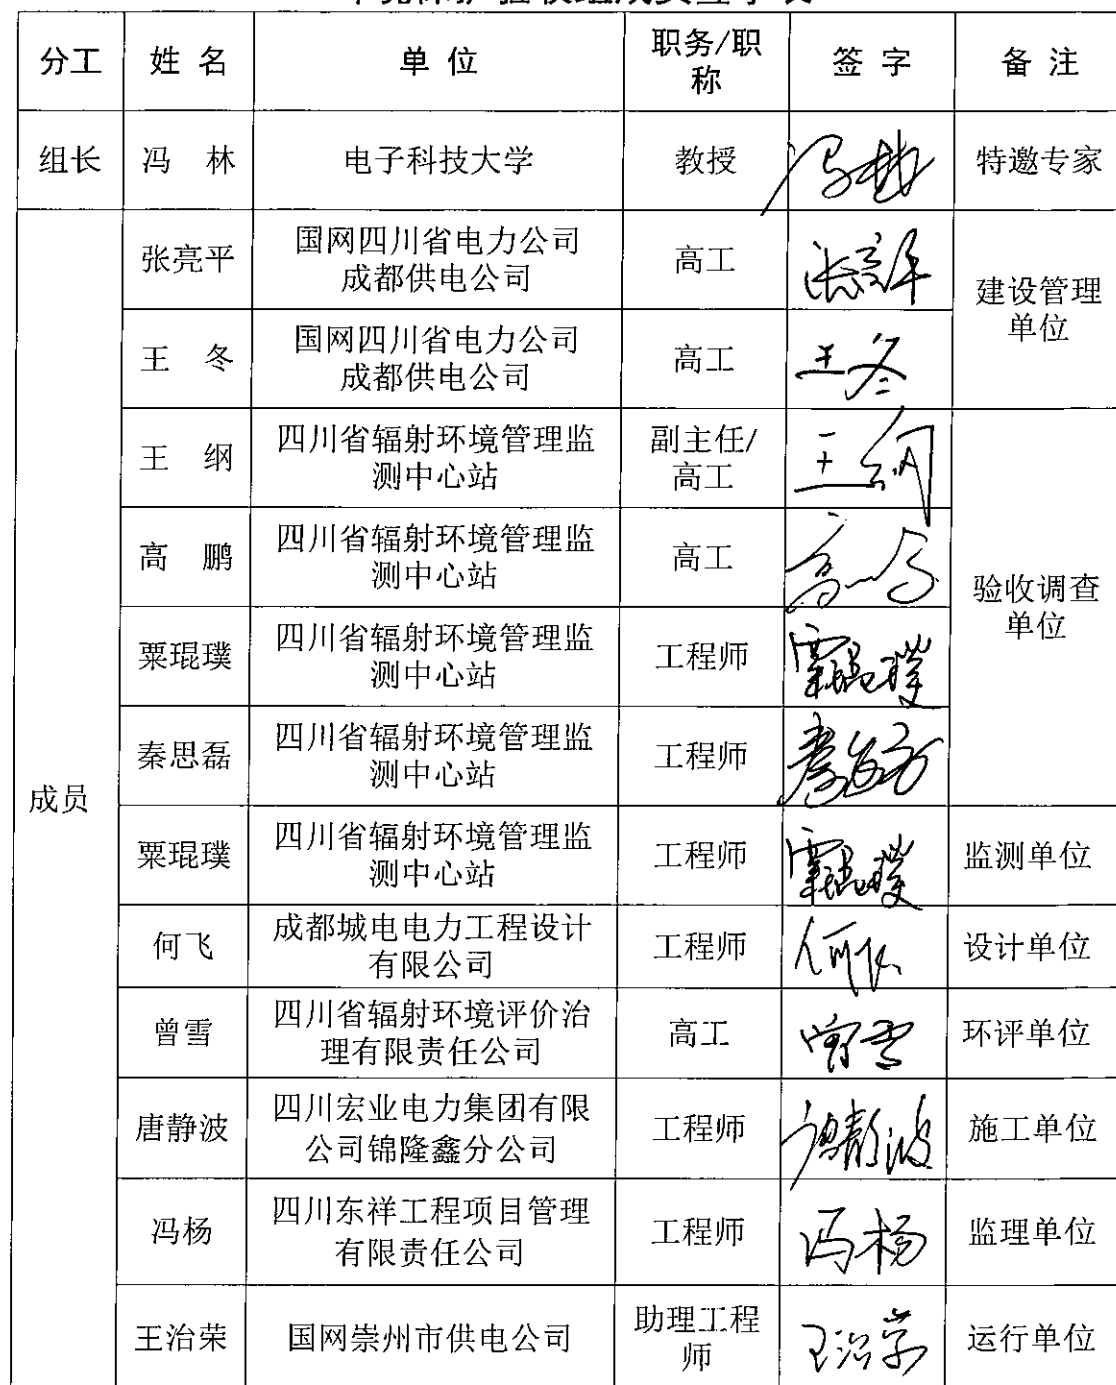 环境保护验收组成员签字表
分工 姓 名 单 位 职务/职称 签 字 备 注
组长 冯 林 电子科技大学 教授 冯林 特邀专家
成员
张亮平 国网四川省电力公司
成都供电公司 高工 张亮平
建设管理
单位
王 冬 国网四川省电力公司
成都供电公司 高工 王冬
王 纲 四川省辐射环境管理监
测中心站 副主任/
高工 王纲
高 鹏 四川省辐射环境管理监
测中心站 高工 高鹏
验收调查
单位
粟琨璞 四川省辐射环境管理监
测中心站 工程师 粟琨璞
秦思磊 四川省辐射环境管理监
测中心站 工程师
粟琨璞 四川省辐射环境管理监
测中心站 工程师 粟琨璞 监测单位
何飞 成都城电电力工程设计
有限公司 工程师 何飞 设计单位
曾雪 四川省辐射环境评价治
理有限责任公司 高工 曾雪 环评单位
唐静波 四川宏业电力集团有限
公司锦隆鑫分公司 工程师 唐静波 施工单位
冯杨 四川东祥工程项目管理
有限责任公司 工程师 冯杨 监理单位
王治荣 国网崇州市供电公司 助理工程
师 王治荣 运行单位